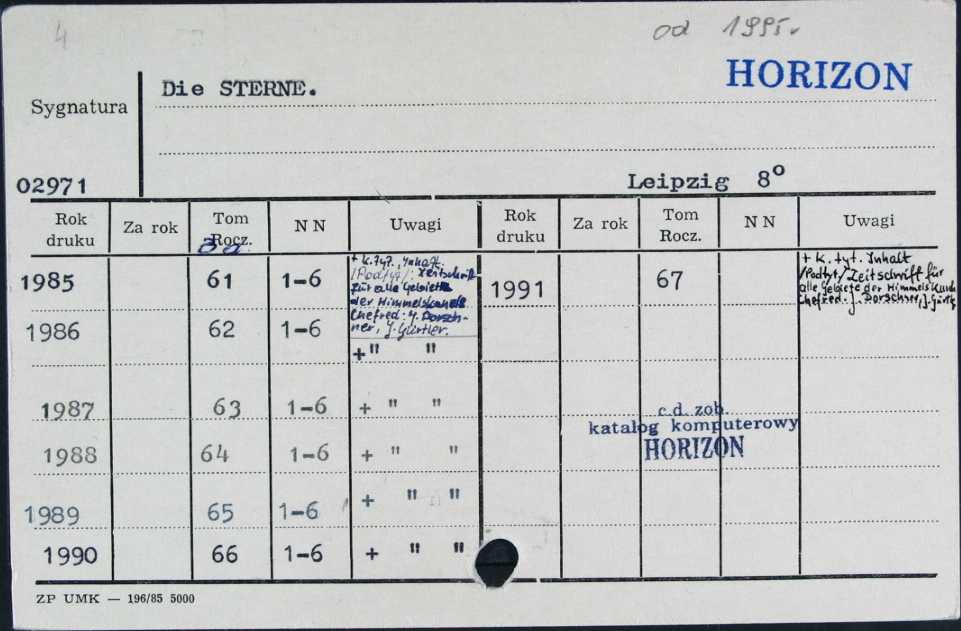 4
od 1995r
HORIZON
Die STERNE.
Sygnatura
02971
Leipzig 8°
Rok druku Za rok Tom Rocz. NN Uwagi Rok druku Za rok Tom Rocz. NN Uwagi
1985 61 1-6 + K.tyt., Inhalt.
/Podtyt/: Zeitschrift
für alle Gebiete
der Himmelskunde
Chefred: J. Dorsch-
ner, J. Gürtler.
1991 67 + K. tyt. Inhalt
/Podtyt/ Zeitschrift für
alle Gebiete der Himmelskunde
Chefred. J. Dorschner, J. Gürtl
1986 62 1-6 + " "
1987 63 1-6 + " "
c.d. zob.
katalog komputerowy
HORIZON
1988 64 1-6 + " "
1989 65 1-6 + " "
1990 66 1-6 + " "
ZP UMK — 196/85 5000